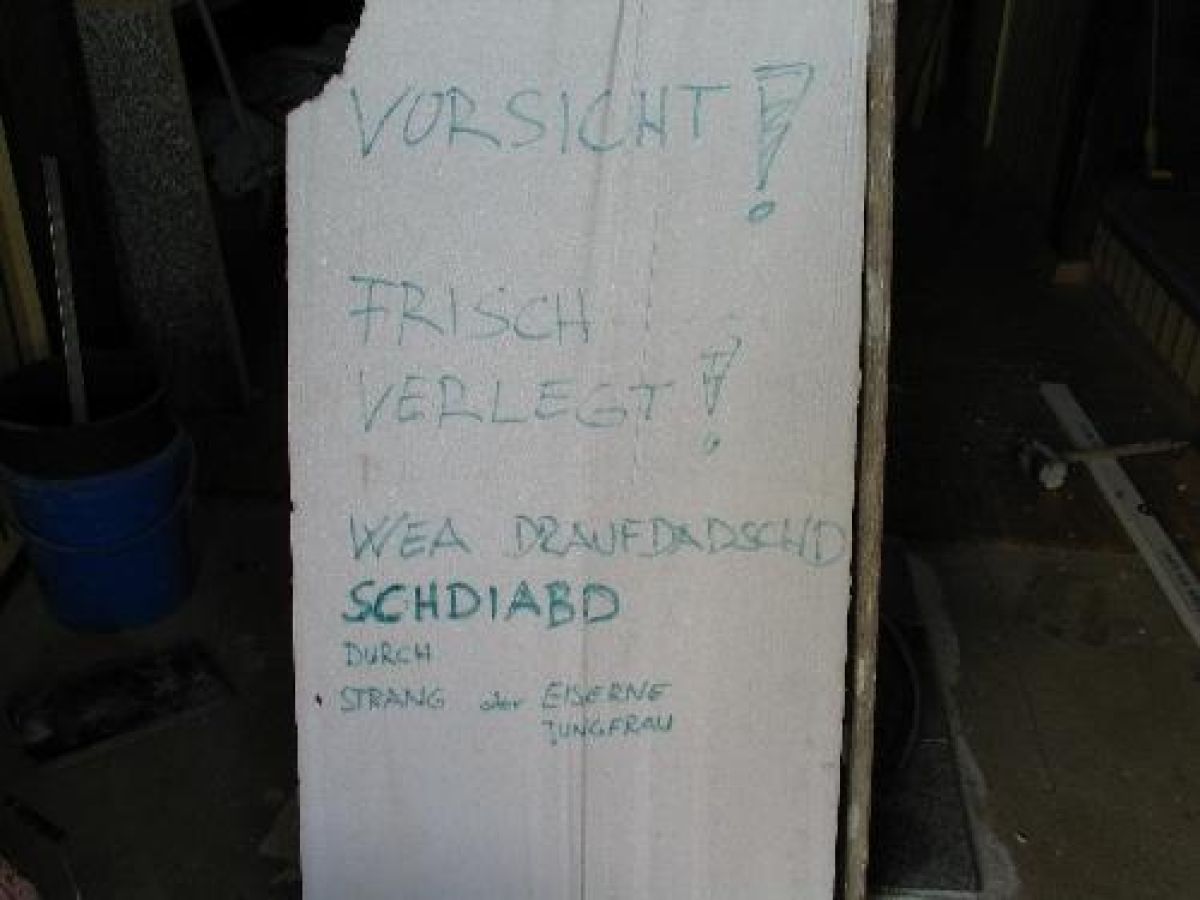 VORSICHT!
FRISCH
VERLEGT!
WEA DRAUFDADSCHD
SCHDIABD
DURCH
STRANG oder EISERNE
JUNGFRAU